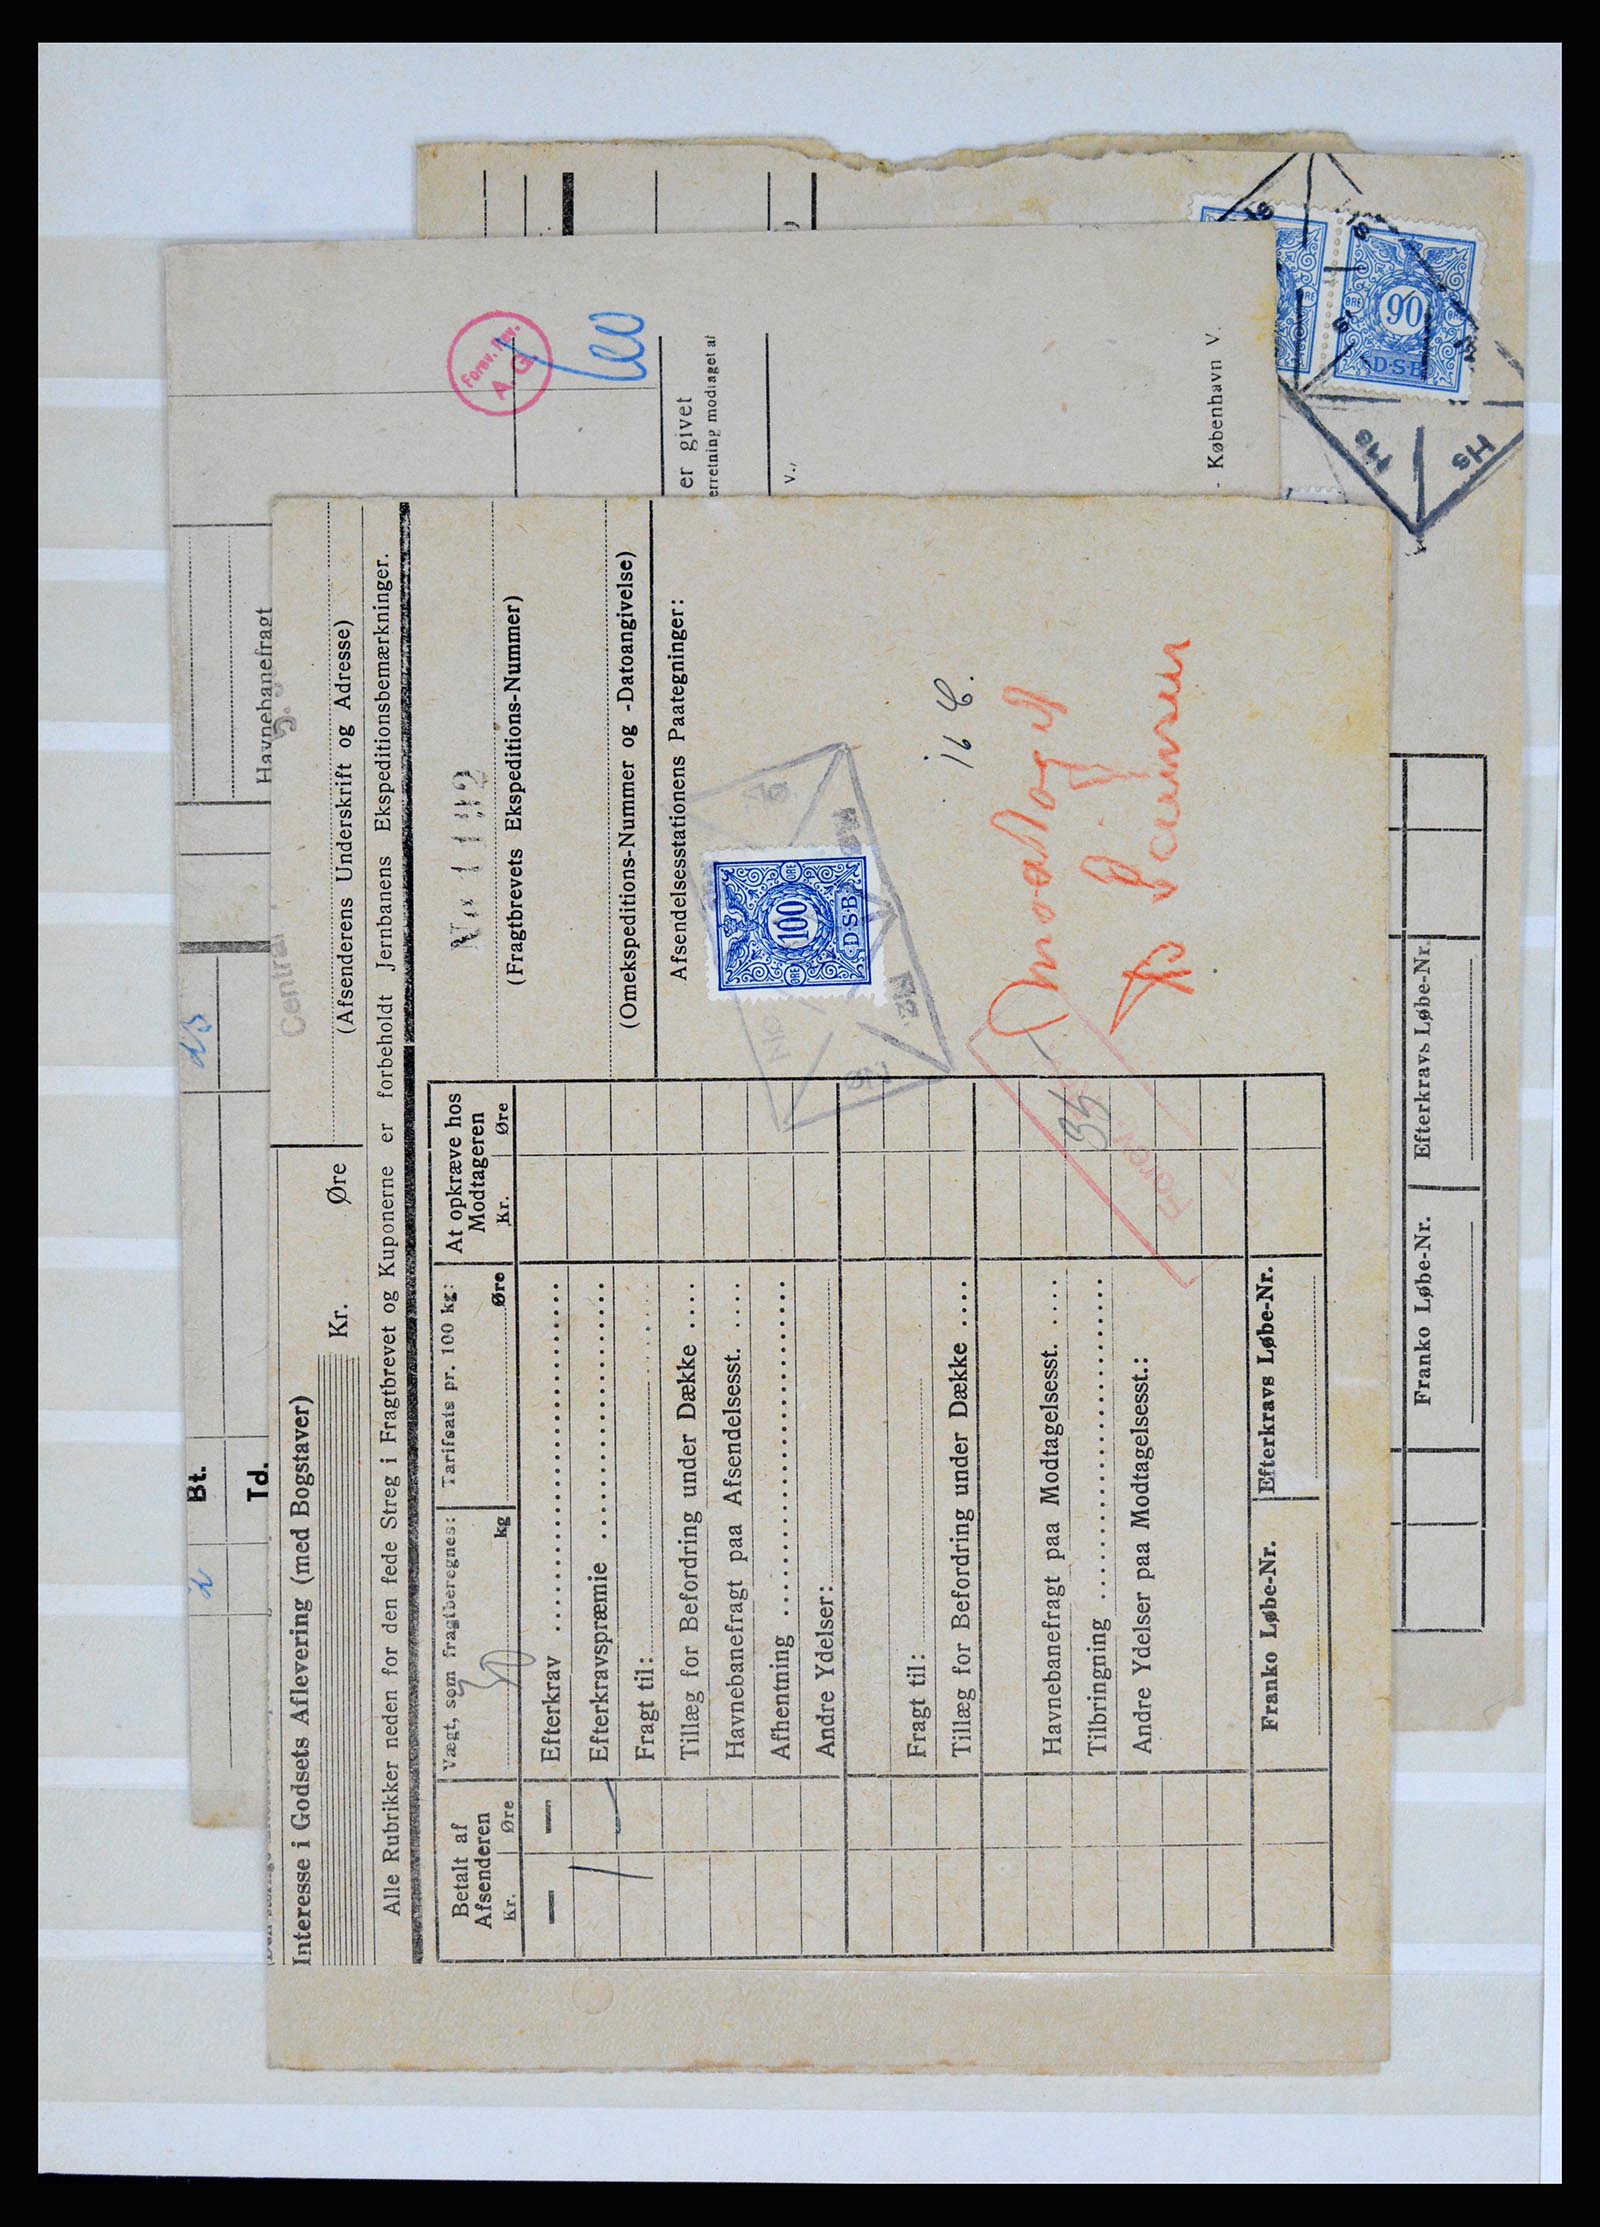 Interesse i Godsets Aflevering (med Bogstaver)
Kr. Øre
(Afsenderens Underskrift og Adresse)
Alle Rubrikker neden for den fede Streg i Fragtbrevet og Kuponerne er forbeholdt Jernbanens Ekspeditionsbemærkninger.
Betalt af Afsenderen
Kr. Øre
Vægt, som fragtberegnes:
kg
Tarifsats pr. 100 kg:
Øre
At opkræve hos Modtageren
Kr. Øre
No 1192
(Fragtbrevets Ekspeditions-Nummer)
(Omekspeditions-Nummer og -Datoangivelse)
Afsendelsesstationens Paategninger:
Efterkrav
Efterkravspræmie
Fragt til:
Tillæg for Befordring under Dække
Havnebanefragt paa Afsendelsesst.
Afhentning
Andre Ydelser:
Fragt til:
Tillæg for Befordring under Dække
Havnebanefragt paa Modtagelsesst.
Tilbringning
Andre Ydelser paa Modtagelsesst.:
Franko Løbe-Nr.
Efterkravs Løbe-Nr.
ØRE 100 ØRE
D·S·B
Central
Havnebanefragt
Bt.
Td.
Forev. Rev.
A. G.
er givet
erretning modtaget af
v.,
- København V.
ØRE 90 ØRE
D·S·B
Hs
Franko Løbe-Nr.
Efterkravs Løbe-Nr.